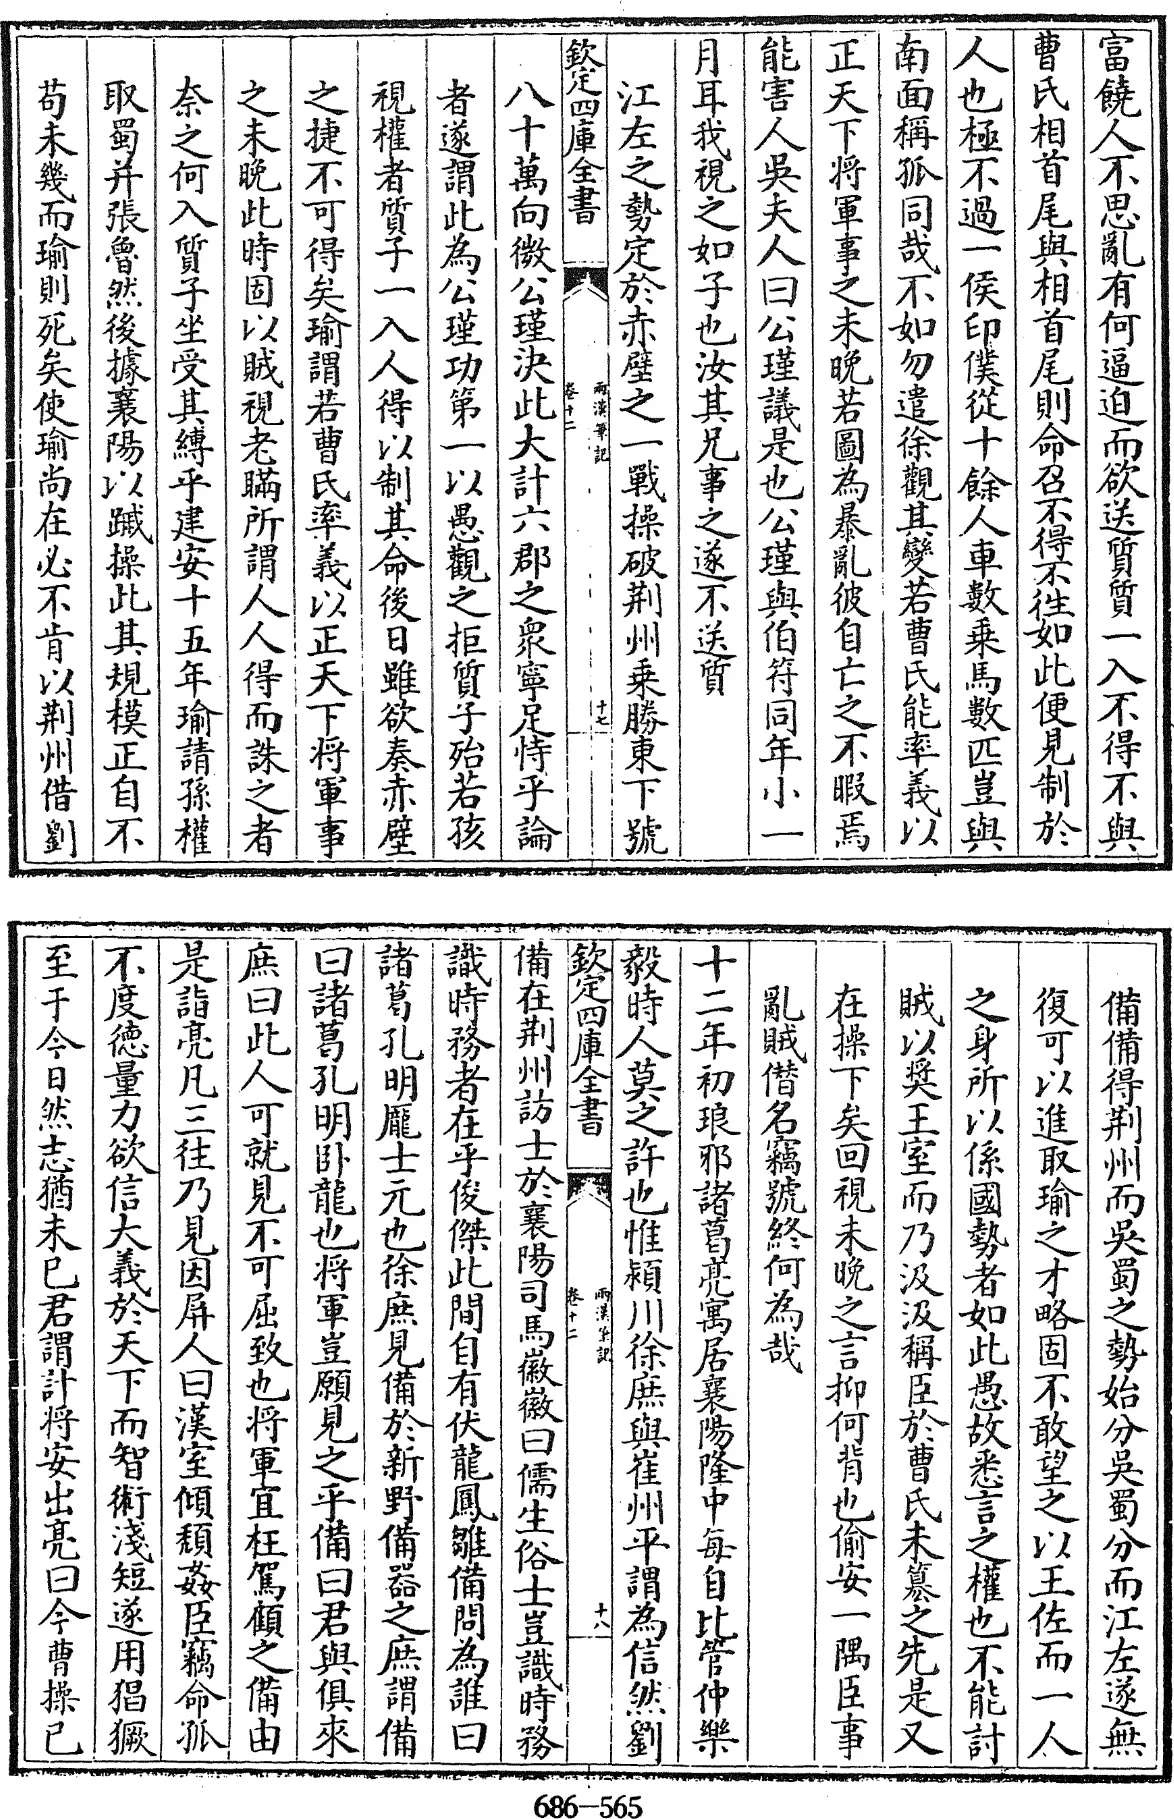 富饒人不思亂有何逼迫而欲送質質一入不得不與
曹氏相首尾與相首尾則命召不得不徃如此便見制於
人也極不過一侯印僕從十餘人車數乗馬數匹豈與
南面稱孤同哉不如勿遣徐觀其變若曹氏能率義以
正天下将軍事之未晚若圖為暴亂彼自亡之不暇焉
能害人吳夫人曰公瑾議是也公瑾與伯符同年小一
月耳我視之如子也汝其兄事之遂不送質
江左之勢定於赤壁之一戰操破荆州乗勝東下號
欽定四庫全書
兩漢筆記
卷十二
十七
八十萬向微公瑾決此大計六郡之衆寧足恃乎論
者遂謂此為公瑾功第一以愚觀之拒質子殆若孩
視權者質子一入人得以制其命後日雖欲奏赤壁
之捷不可得矣瑜謂若曹氏率義以正天下将軍事
之未晚此時固以賊視老瞞所謂人人得而誅之者
奈之何入質子坐受其縛乎建安十五年瑜請孫權
取蜀并張魯然後據襄陽以蹴操此其規模正自不
苟未幾而瑜則死矣使瑜尚在必不肯以荆州借劉
備備得荆州而吳蜀之勢始分吳蜀分而江左遂無
復可以進取瑜之才略固不敢望之以王佐而一人
之身所以係國勢者如此愚故悉言之權也不能討
賊以奨王室而乃汲汲稱臣於曹氏未簒之先是又
在操下矣回視未晚之言抑何背也偷安一隅臣事
亂賊僭名竊號終何為哉
十二年初琅邪諸葛亮寓居襄陽隆中每自比管仲樂
毅時人莫之許也惟頴川徐庶與崔州平謂為信然劉
欽定四庫全書
兩漢筆記
卷十二
十八
備在荆州訪士於襄陽司馬徽徽曰儒生俗士豈識時務
識時務者在乎俊傑此間自有伏龍鳳雛備問為誰曰
諸葛孔明龎士元也徐庶見備於新野備器之庶謂備
曰諸葛孔明卧龍也将軍豈願見之乎備曰君與俱來
庶曰此人可就見不可屈致也将軍宜枉駕顧之備由
是詣亮凡三徃乃見因屏人曰漢室傾頽姦臣竊命孤
不度德量力欲信大義於天下而智術淺短遂用猖獗
至于今日然志猶未已君謂計将安出亮曰今曹操已
686-565